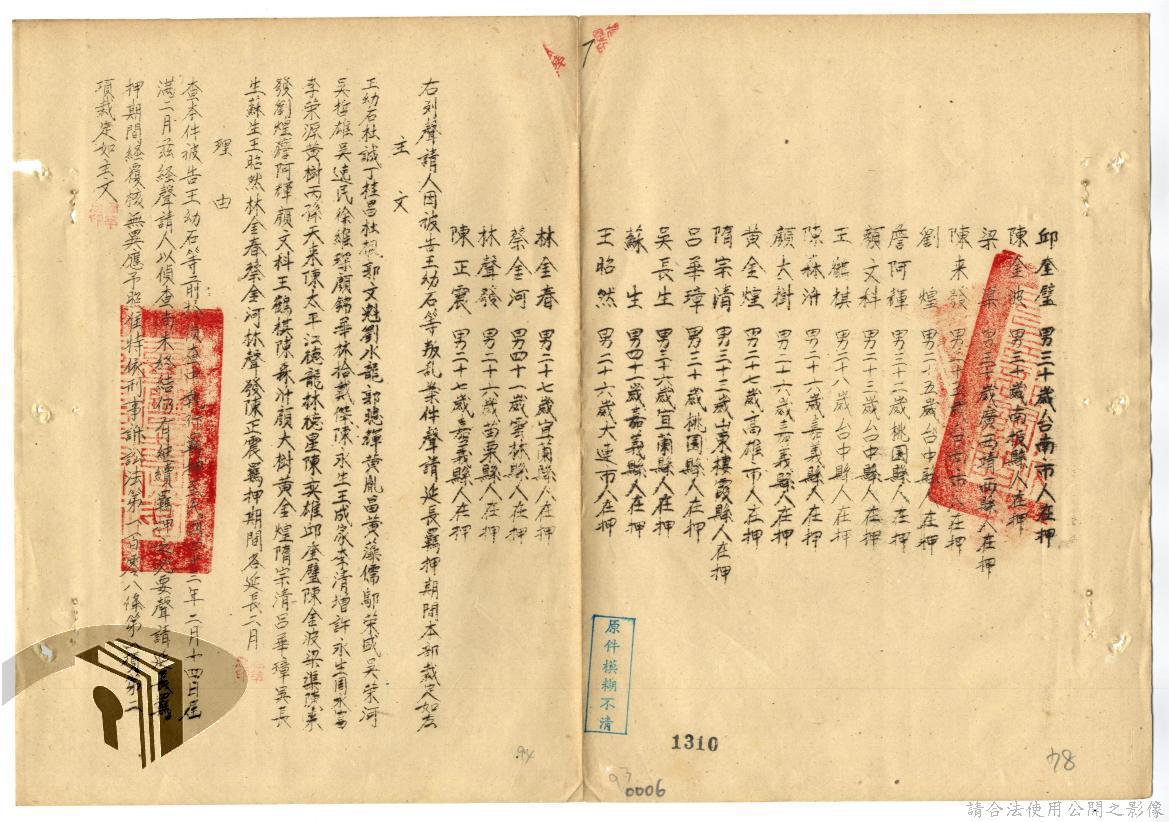 邱奎璧 男三十歲台南市人在押
陳金波 男三十歲南投縣人在押
梁集 男三十歲廣西靖西縣人在押
陳来發 男
劉煌 男二十五歲台中縣人在押
詹阿輝 男三十二歲桃園縣人在押
顏文科 男二十三歲台中縣人在押
王麒棋 男二十八歲台中縣人在押
陳森泭 男二十六歲嘉義縣人在押
顏大樹 男二十六歲嘉義縣人在押
黃金煌 男二十七歲高雄市人在押
隋宗清 男三十二歲山東棲霞縣人在押
呂華璋 男三十歲桃園縣人在押
吳長生 男三十六歲宜蘭縣人在押
蘇生 男四十一歲嘉義縣人在押
王昭然 男二十六歲大連市人在押
林金春 男二十七歲宜蘭縣人在押
蔡金河 男四十一歲雲林縣人在押
林聲發 男二十六歲苗栗縣人在押
陳正宸 男二十七歲嘉義縣人在押
右列聲請人因被告王幼石等叛乱案件聲請延長羈押期間本部裁定如左
主文
王幼石杜誠丁桂昌杜 郭文魁劉水龍郭聰輝黃胤昌黃藻儒鄔榮盛吳榮河
吳哲雄吳遠民徐維琛顏錦華林拾貳傑陳永生王成家李清增許永生周水
李榮源黃樹丙孫天來陳太平江德龍林德星陳英雄邱奎璧陳金波梁集陳来
發劉煌詹阿輝顏文科王鶴棋陳森泭顏大樹黃金煌隋宗清呂華璋吳長
生蘇生王昭然林金春蔡金河林聲發陳正宸羈押期間各延長二月
理由
查本件被告王幼石等前於偵查中 二年二月十四日屆
滿二月茲經聲請人以偵查尚未終結仍有繼續羈押之必要聲請延長羈
押期間經覆核無異應予照准特依刑事訴訟法第一百零八條第 項第二
項裁定如主文
原件模糊不清
1310
0006
84
94
請合法使用公開之影像